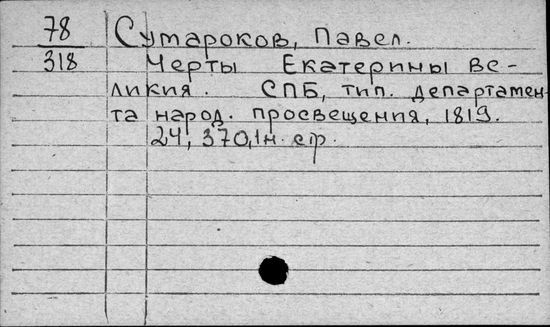 78 Сумароков, Павел.
318 Черты Екатерины Ве-
ликия. СПБ, тип. департамен-
та народ. просвещения, 1819.
24, 370, 1н. стр.